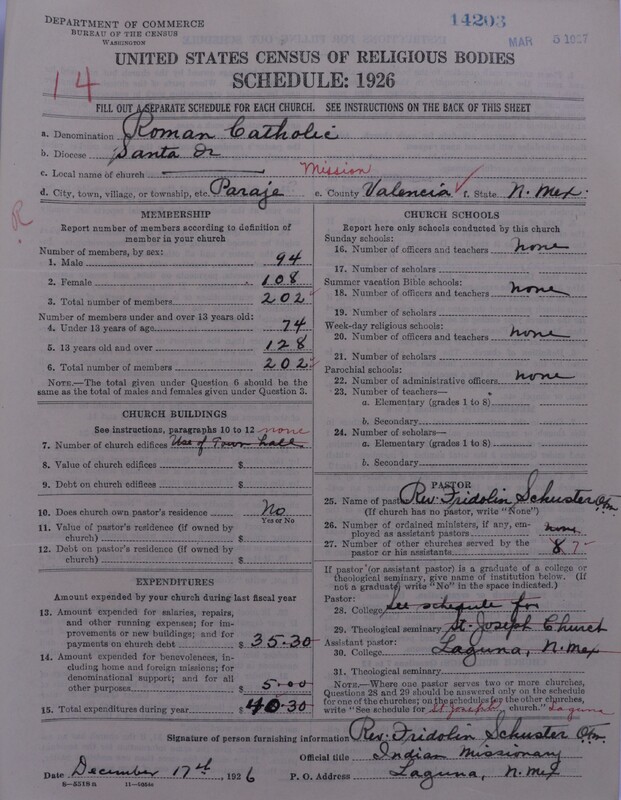 DEPARTMENT OF COMMERCE
BUREAU OF THE CENSUS
WASHINGTON
14203
MAR 5 1927
UNITED STATES CENSUS OF RELIGIOUS BODIES
SCHEDULE: 1926
14
FILL OUT A SEPARATE SCHEDULE FOR EACH CHURCH. SEE INSTRUCTIONS ON THE BACK OF THIS SHEET
a. Denomination Roman Catholic
b. Diocese Santa
c. Local name of church Mission
d. City, town, village, or township, etc. Paraje e. County Valencia f. State N. Mex.
R
MEMBERSHIP
Report number of members according to definition of
member in your church
Number of members, by sex:
1. Male 94
2. Female 108
3. Total number of members 202
Number of members under and over 13 years old:
4. Under 13 years of age 74
5. 13 years old and over 128
6. Total number of members 202
NOTE.—The total given under Question 6 should be the
same as the total of males and females given under Question 3.
CHURCH BUILDINGS
See instructions, paragraphs 10 to 12 none
7. Number of church edifices Use of Town hall
8. Value of church edifices $
9. Debt on church edifices $
10. Does church own pastor's residence No
Yes or No
11. Value of pastor's residence (if owned by
church) $
12. Debt on pastor's residence (if owned by
church) $
EXPENDITURES
Amount expended by your church during last fiscal year
13. Amount expended for salaries, repairs,
and other running expenses; for im-
provements or new buildings; and for
payments on church debt $ 35.30
14. Amount expended for benevolences, in-
cluding home and foreign missions; for
denominational support; and for all
other purposes 5.00
15. Total expenditures during year $ 40.30
CHURCH SCHOOLS
Report here only schools conducted by this church
Sunday schools:
16. Number of officers and teachers none
17. Number of scholars
Summer vacation Bible schools:
18. Number of officers and teachers none
19. Number of scholars
Week-day religious schools:
20. Number of officers and teachers none
21. Number of scholars
Parochial schools:
22. Number of administrative officers none
23. Number of teachers—
a. Elementary (grades 1 to 8)
b. Secondary
24. Number of scholars—
a. Elementary (grades 1 to 8)
b. Secondary
PASTOR
25. Name of pastor Rev. Fridolin Schuster Ofm.
(If church has no pastor, write "None")
26. Number of ordained ministers, if any, em-
ployed as assistant pastors none
27. Number of other churches served by the
pastor or his assistants 8 7
If pastor (or assistant pastor) is a graduate of a college or
theological seminary, give name of institution below. (If
not a graduate write "No" in the space indicated.)
Pastor:
28. College See schedule for
29. Theological seminary St. Joseph Church
Assistant pastor:
30. College Laguna, N. Mex
31. Theological seminary
NOTE.—Where one pastor serves two or more churches,
Questions 28 and 29 should be answered only on the schedule
for one of the churches; on the schedules for the other churches,
write "See schedule for St. Joseph's church." Laguna
Signature of person furnishing information Rev. Fridolin Schuster Ofm.
Official title Indian Missionary
Date December 17th, 1926 P. O. Address Laguna, N. Mex
8—5518 n